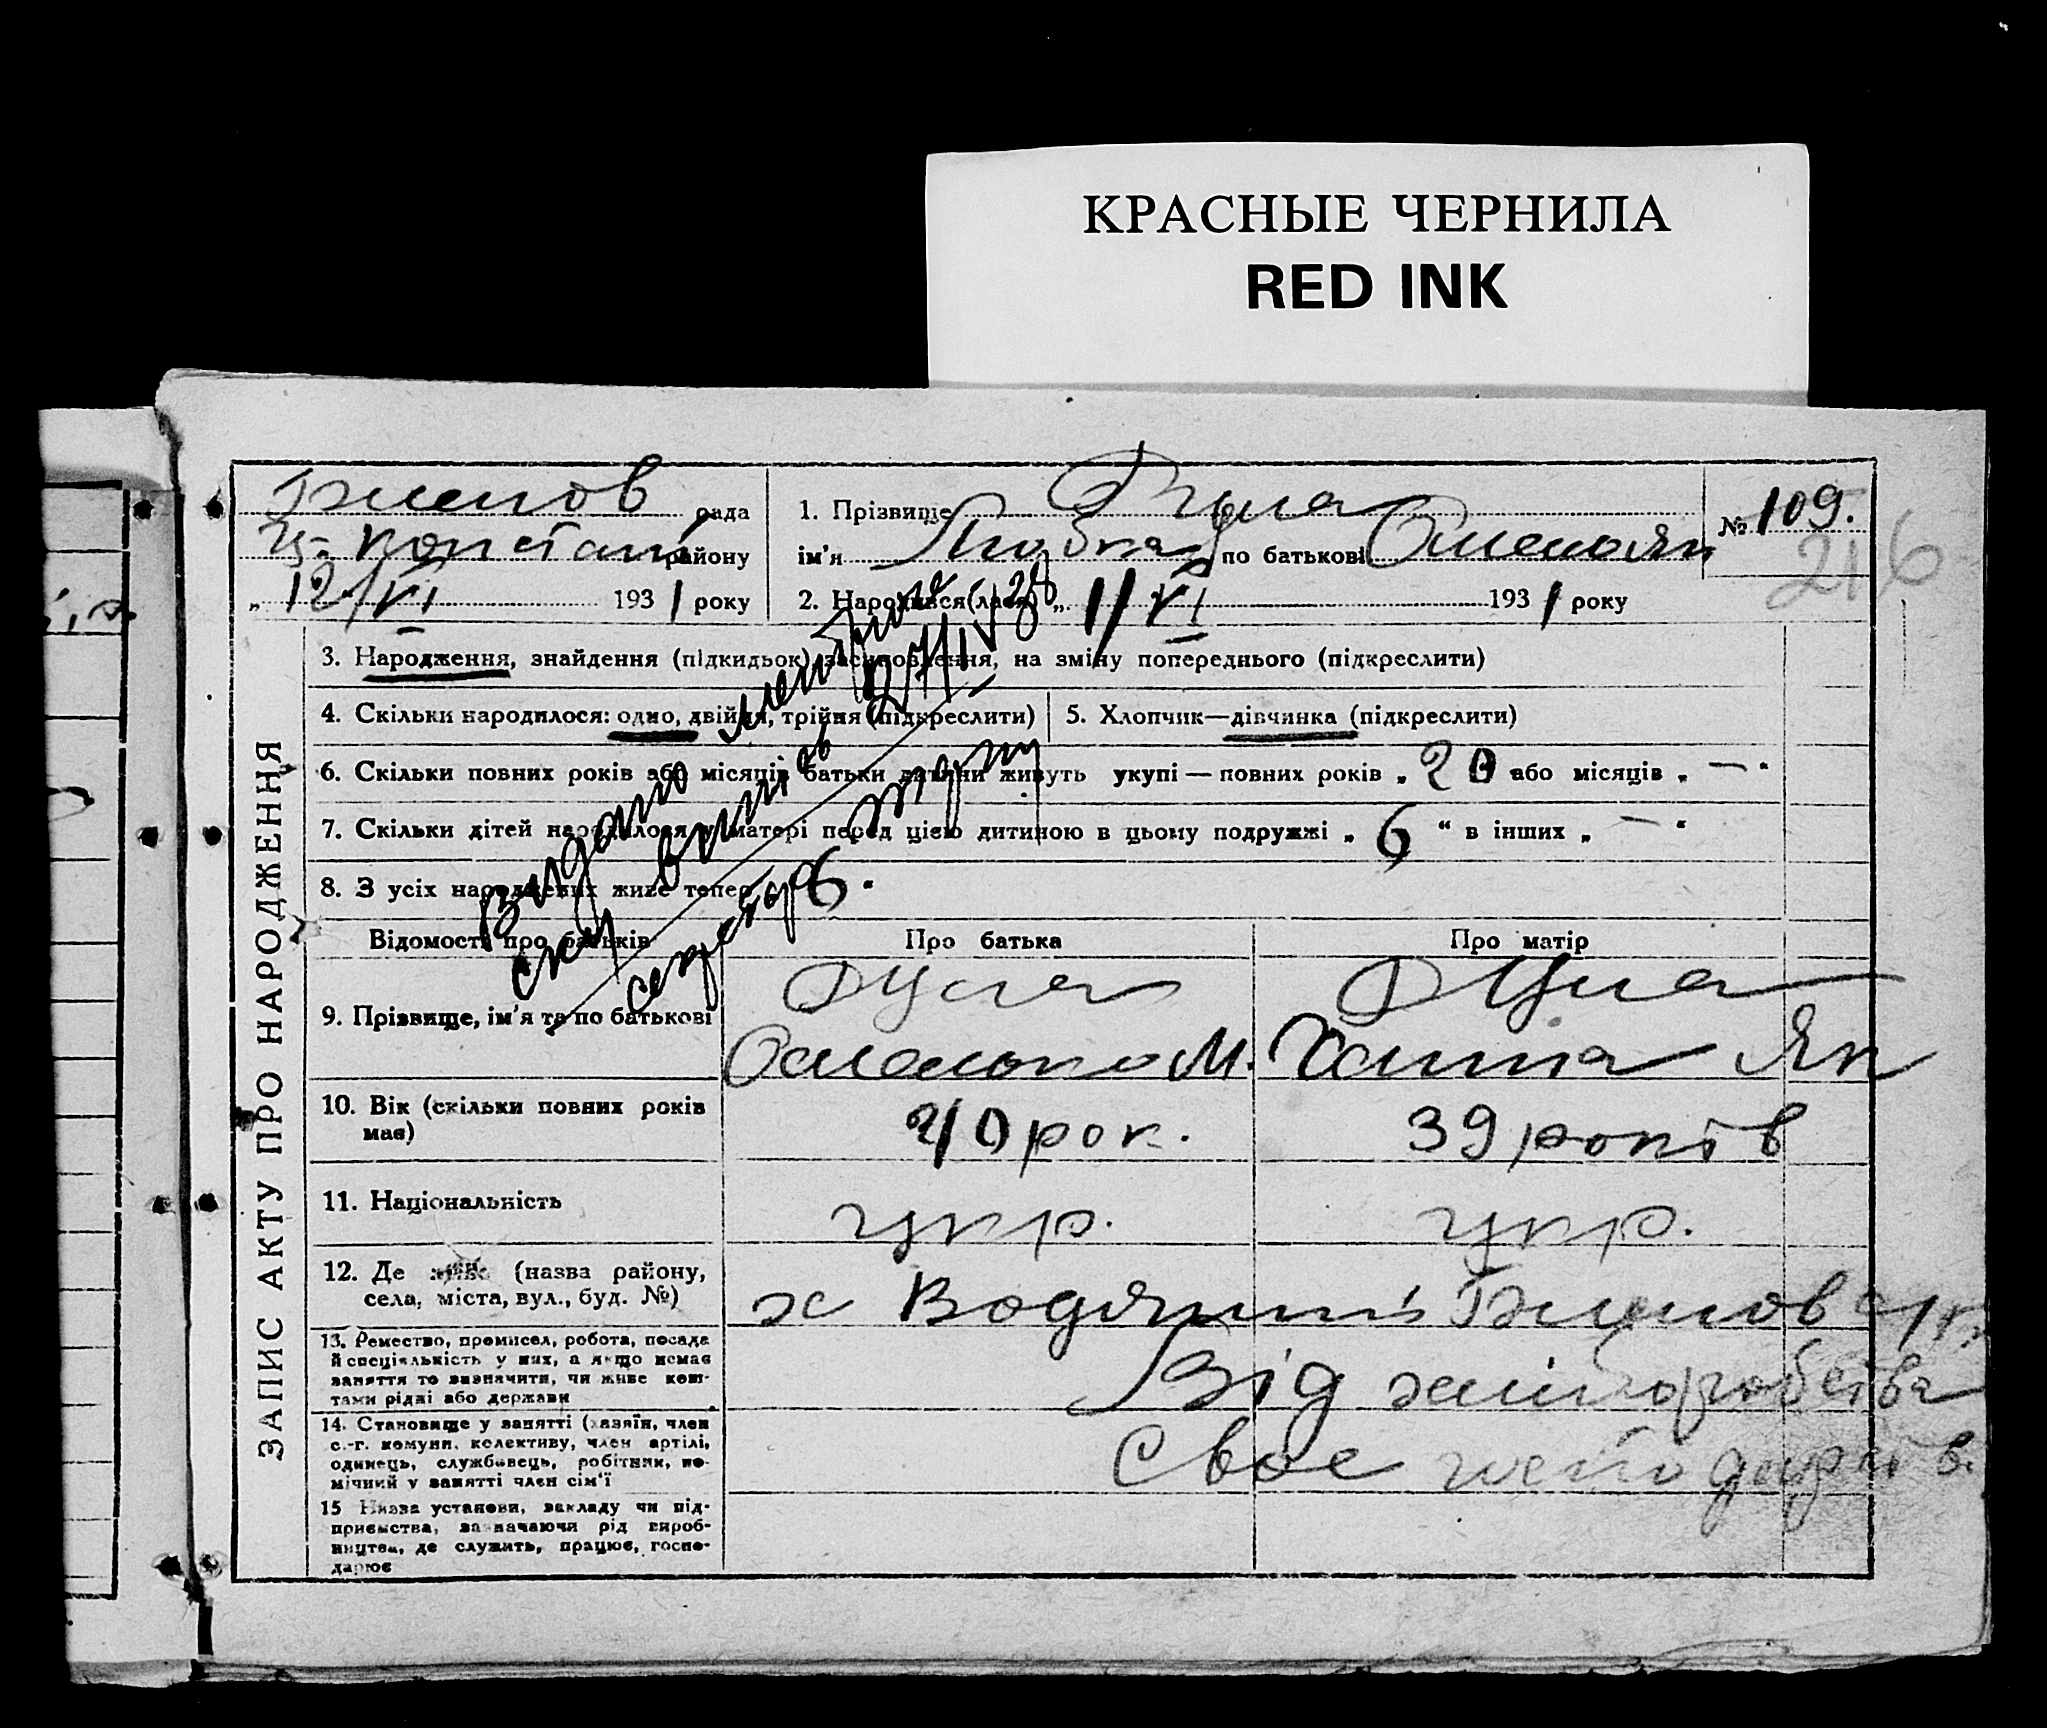 КРАСНЫЕ ЧЕРНИЛА
RED INK
рада
району
„ 12/VI 1931 року
1. Прізвище
ім'я Любка по батькові
№ 109.
216
2. Народився(лася) „ 1/VI 1931 року
3. Народження, знайдення (підкидьок) засиновлення, на зміну попереднього (підкреслити)
4. Скільки народилося: одно, двійня, трійня (підкреслити)
5. Хлопчик—дівчинка (підкреслити)
6. Скільки повних років або місяців батьки дитини живуть укупі — повних років „ 20 або місяців „ — "
7. Скільки дітей народилося у матері перед цією дитиною в цьому подружжі „ 6 " в інших „ — "
8. З усіх народжених живе тепер 6.
Видано
27/IV 38
секретарь
ЗАПИС АКТУ ПРО НАРОДЖЕННЯ
Відомості про батьків
Про батька
Про матір
9. Прізвище, ім'я та по батькові
Дуля
Омелько М.
Дуля
Ханна Як
10. Вік (скільки повних років має)
40 рок.
39 років
11. Національність
укр.
укр.
12. Де живе (назва району,
села, міста, вул., буд. №)
х Водяний
13. Ремество, промисел, робота, посада
й спеціяльність у них, а якщо немає
заняття то визначити, чи живе кош-
тами рідні або держави
Від хліборобства
14. Становище у занятті (хазяїн, член
с.-г. комуни, колективу, член артілі,
одинець, службовець, робітник, по-
мічний у занятті член сім'ї
Своє господарств.
15 Назва установи, закладу чи під-
приємства, зазначаючи рід вироб-
ництва, де служить, працює, госпо-
дарює